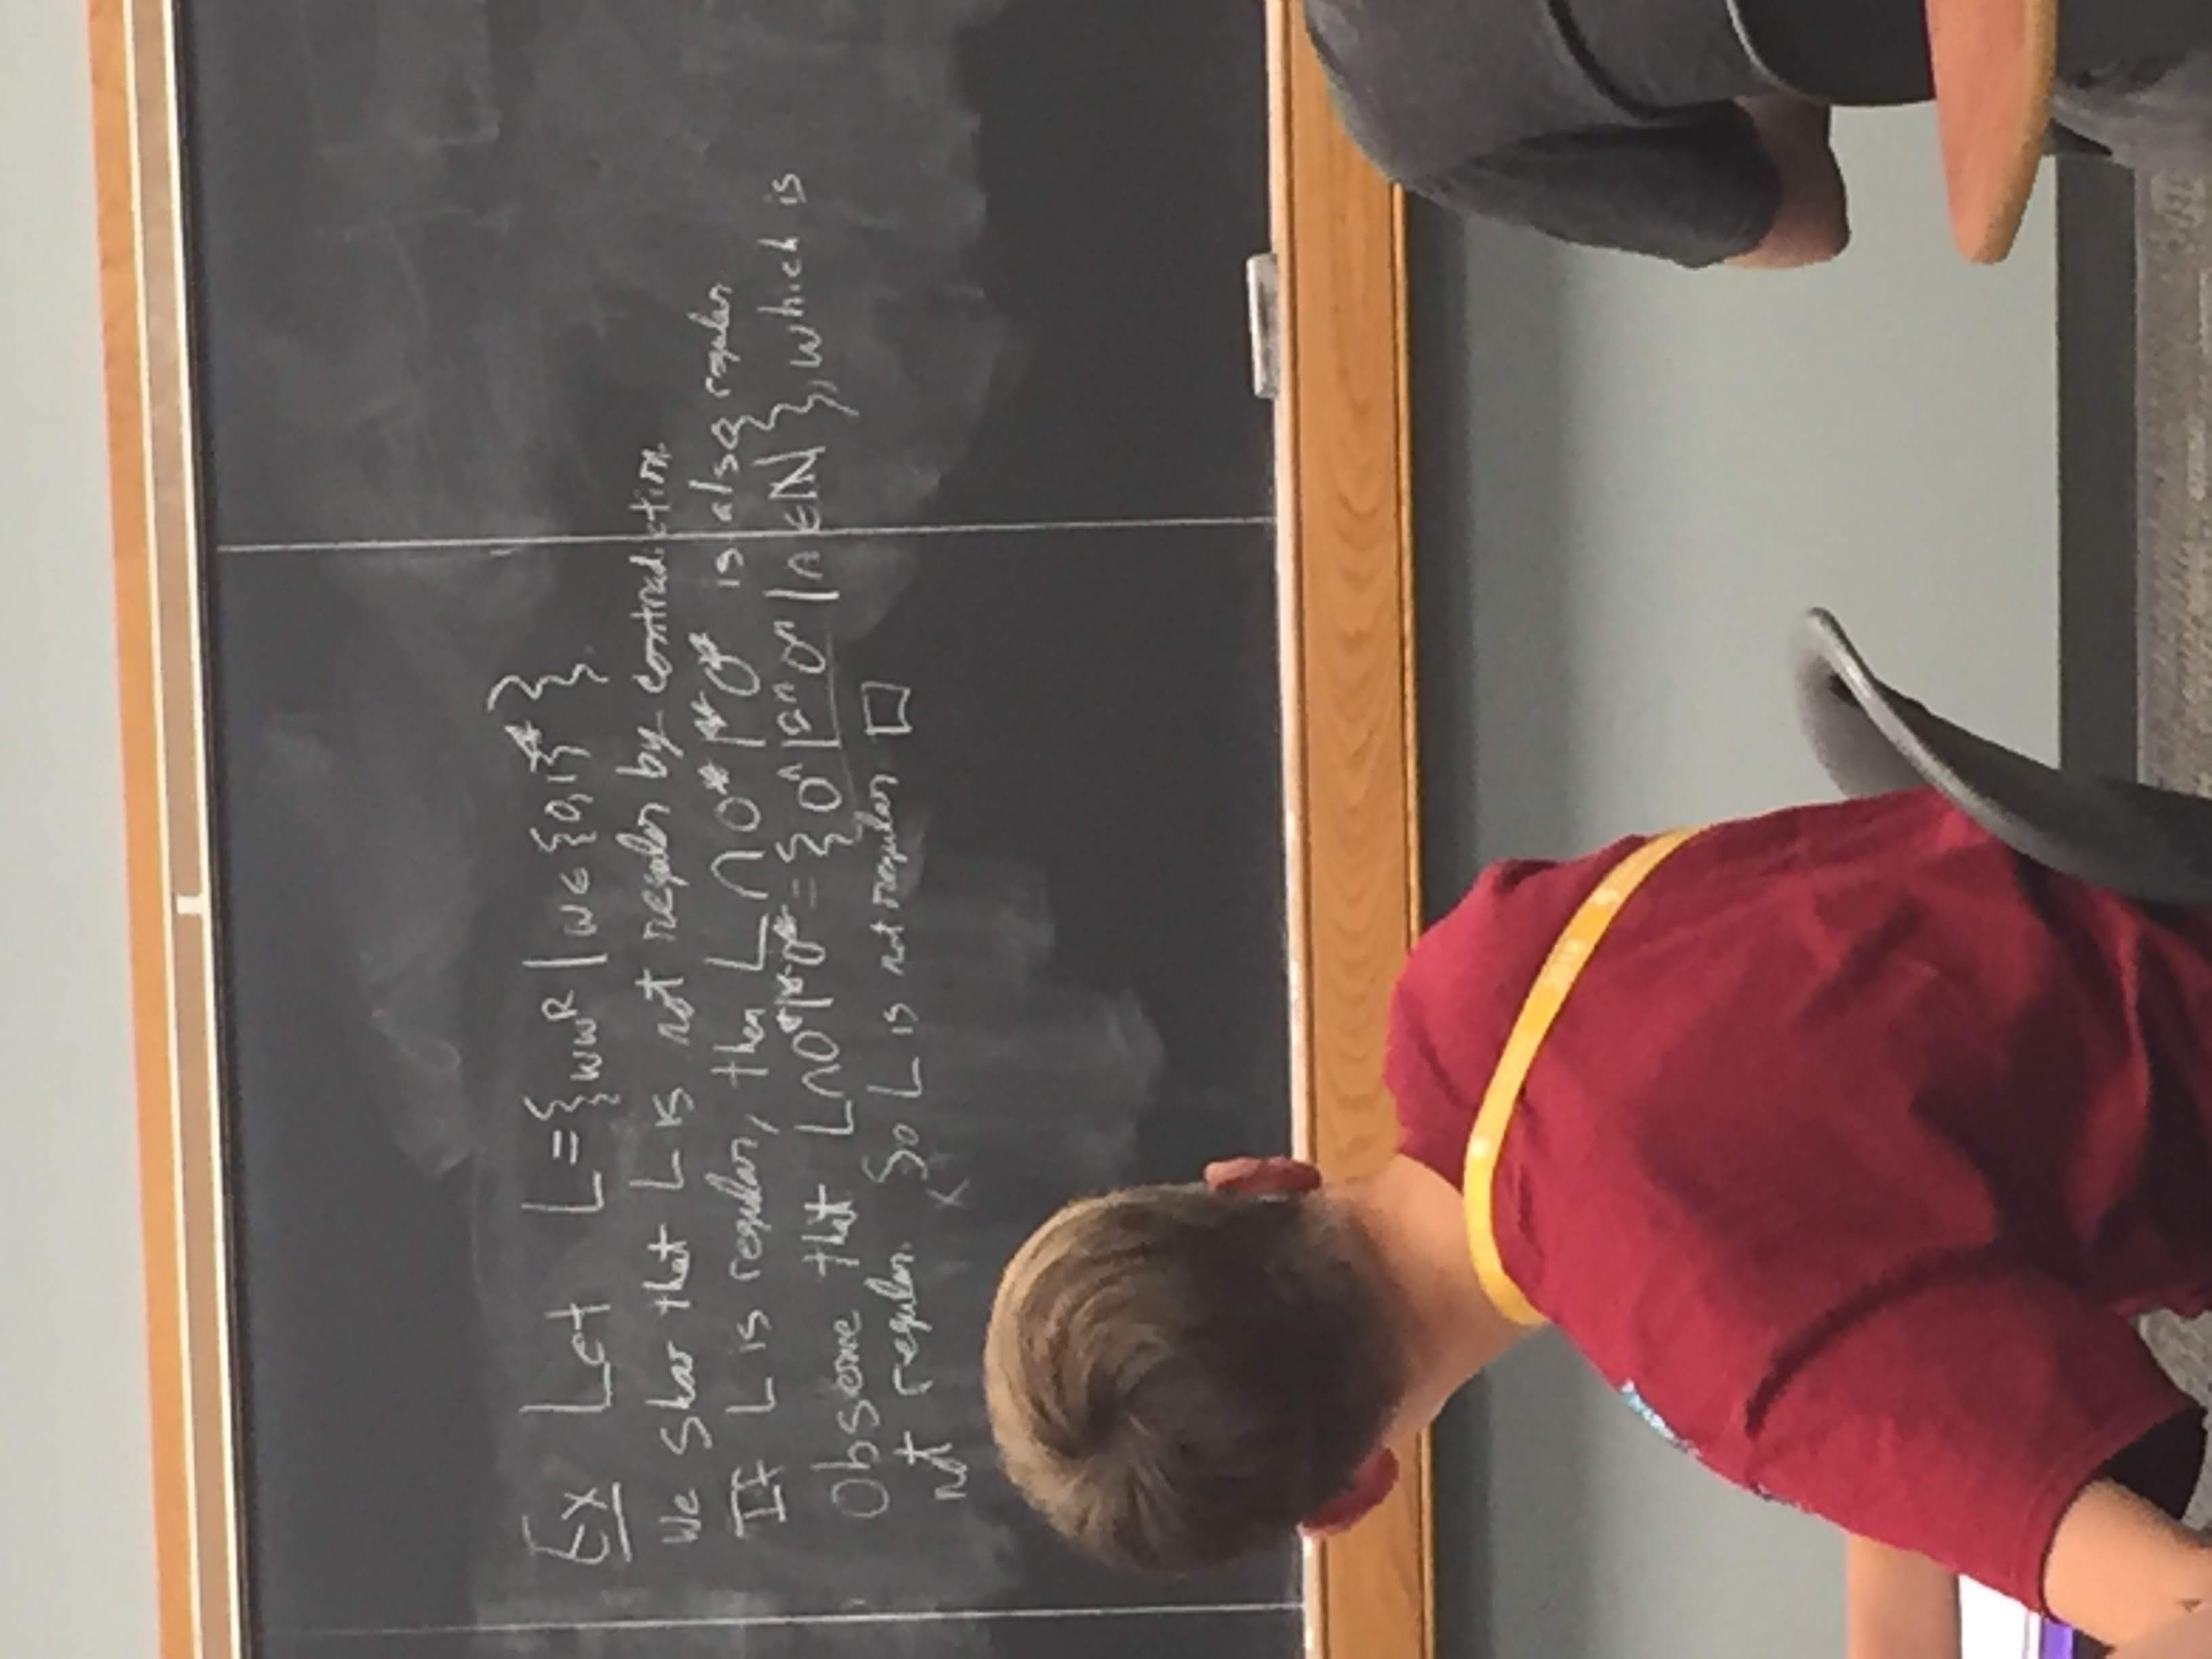 Ex Let L = {ww^R | w ∈ {0,1}^*}.
We show that L is not regular by contradiction.
If L is regular, then L ∩ 0^*1^*0^* is also regular
Observe that L ∩ 0^*1^*0^* = {0^n 1^2n 0^n | n ∈ ℕ}, which is
not regular. So L is not regular □
x